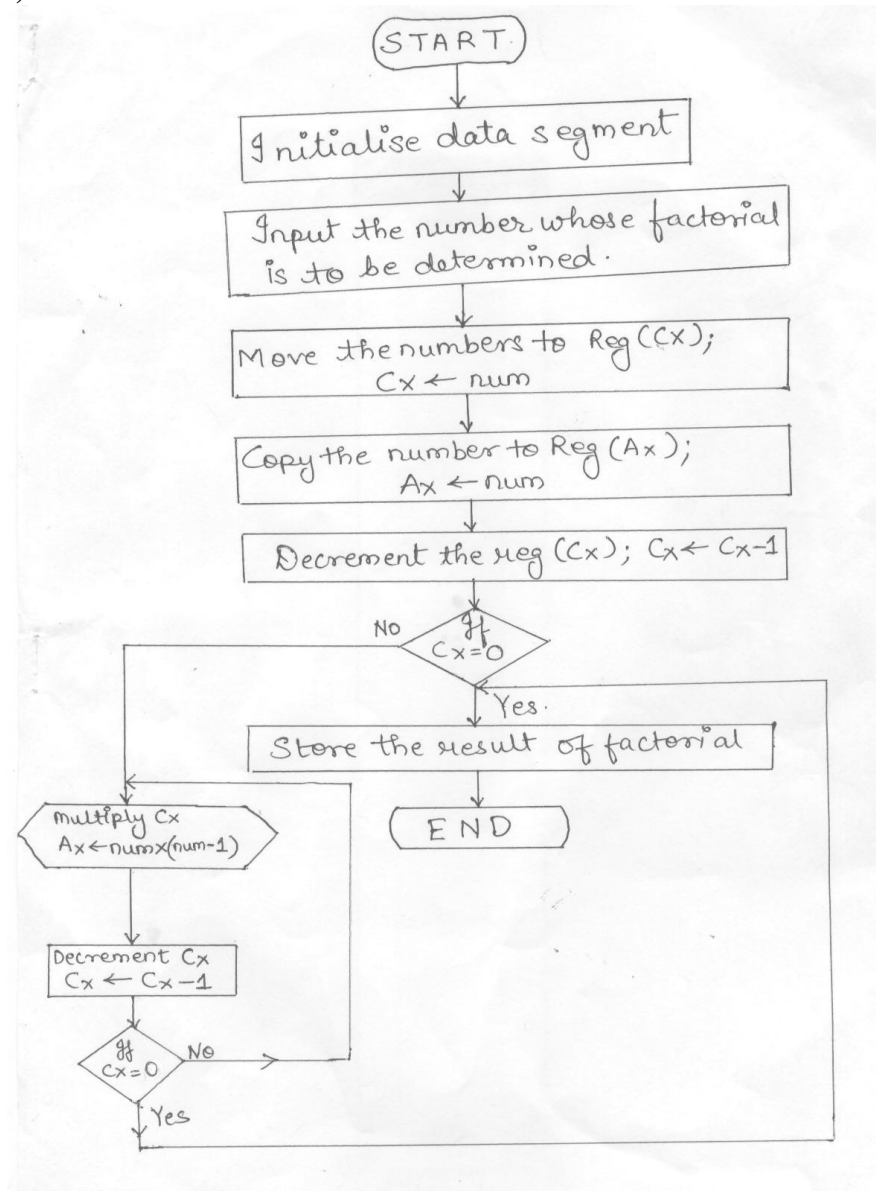 START
Initialise data segment
Input the number whose factorial
is to be determined.
Move the numbers to Reg (CX);
CX ← num
Copy the number to Reg (AX);
AX ← num
Decrement the reg (CX); CX ← CX-1
If
CX=0
NO
Yes.
Store the result of factorial
END
multiply CX
AX←numx(num-1)
Decrement CX
CX ← CX-1
If
CX=0
No
Yes